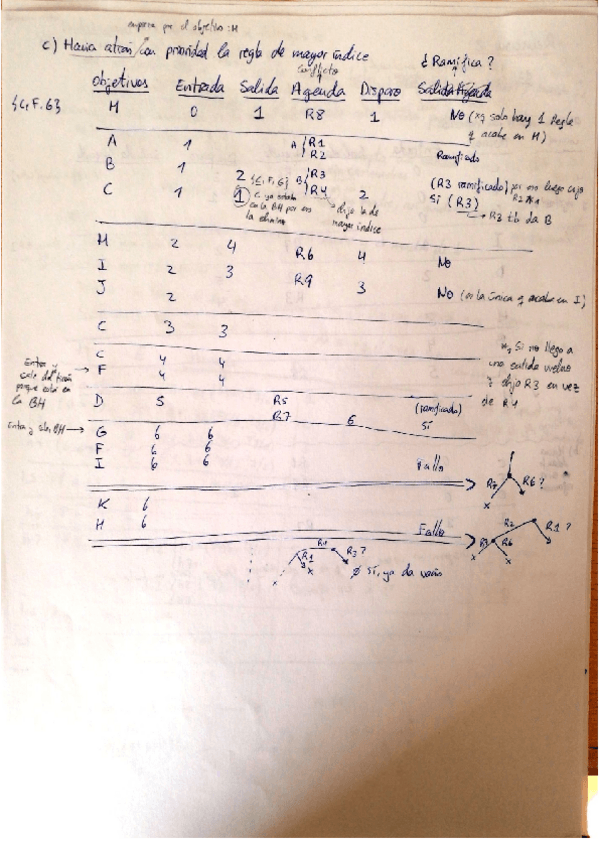 empieza por el objetivo: H
c) Hacia atrás/con prioridad la regla de mayor índice
¿Ramifica?
Conflicto
Objetivos Entrada Salida Agenda Disparo Salida Agenda
{C,F,G} H 0 1 R8 1 No (xq solo hay 1 Regla
q acabe en H)
A 1 A R1
R2 Ramificado
B 1 B R3
C 1 2 {C,F,G} R4 2 (R3 ramificado) por eso luego cojo
1 C ya estaba en la BH por eso la elimino
elijo la de mayor índice
Sí (R3)
R3 tb da B
H 2 4 R6 4 No
I 2 3 R9 3 No (es la única q acabe en I)
J 2
C 3 3
C 4 4
F 4 4
Entra y sale del tirón porque está en la BH
Si no llego a
una salida vuelvo
y elijo R3 en vez
de R4
D 5 R5 (ramificado)
R7 6 Sí
Entra y sale, BH
G 6 6
F 6 6
I 6 6 Fallo
R7 R6?
K 6
H 6 Fallo
R2 R1?
R3 R6
x x
R1 R3?
x Ø Sí, ya da